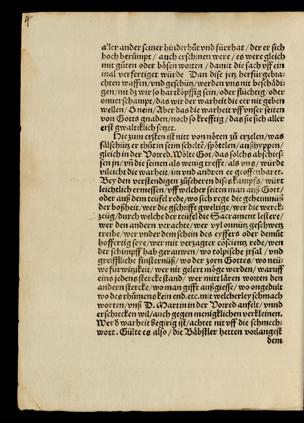 aller ander seiner hinderhůt vnd fürthat / der er sich
hoch berümpt / auch erschinen were / es were gleich
mit gůten oder bösen worten / damit die sach vff ein
mal verfertiget würde Dan dise jetz herfürgebra-
chten waffen / vnd geschütz / werden vns nit beschådi-
gen / nit dz wir so harköpffig sein / oder flüchtig / oder
onuerschampt / das wir der warheit die eer nit geben
wellen / Nein / Aber das die warheit vff vnser seiten
von Gotts gnaden / noch so krefftig / das sie sich aller
erst gwaltiklich setzet.
Hie zum ersten ist nitt von nöten zů erzelen / was
fälsch er thůt in seim schelte / spötlen / außhyppen /
gleich in der Vorred. Wölte Got / das solchs abschies-
sen jn / vnd die seinen als wenig treffe / als vns / würde
vileicht die warheit / in vnd andren ee geoffenbaret.
Bey den verstendigen züseheren dises kampfs / würt
leichtlich ermessen / vff welcher seiten man auß Gott /
oder auß dem teüfel rede / wo sich rege die geheimnuß
der boßheit / wer die gschifft gweltige / wer die werck-
zeüg / durch welche der teüfel die Sacrament lestere /
wer den andern verachte / wer vyl onnütz geschwetz
treibe / wer vnder dem schein des eyffers oder demůt
hoffertig seye / wer mit verzagter cöscientz rede / wen
der schimpff hab gerauwen / wo tolpische jrsal / vnd
greiffliche finsternüß / wo der zorn Gottes / wo neü-
we fürwitzikeit / wer nit gelert möge werden / warůff
eins jedens stercke stand / wer mit låren worten den
andern stercke / wo man gifft außgiesse / wo ongedult
wo des rhůmens kein end. etc. mit welcherley schmach
worten / vnß D. Martin in der Vorred anfelt / vnnd
erschrecken wil / auch gegen menigklichen verkleinen.
Wer d warheit begirig ist / achtet nit vff die schmech-
wort. Gülte es also / die Båbstler hetten vorlangest
dem